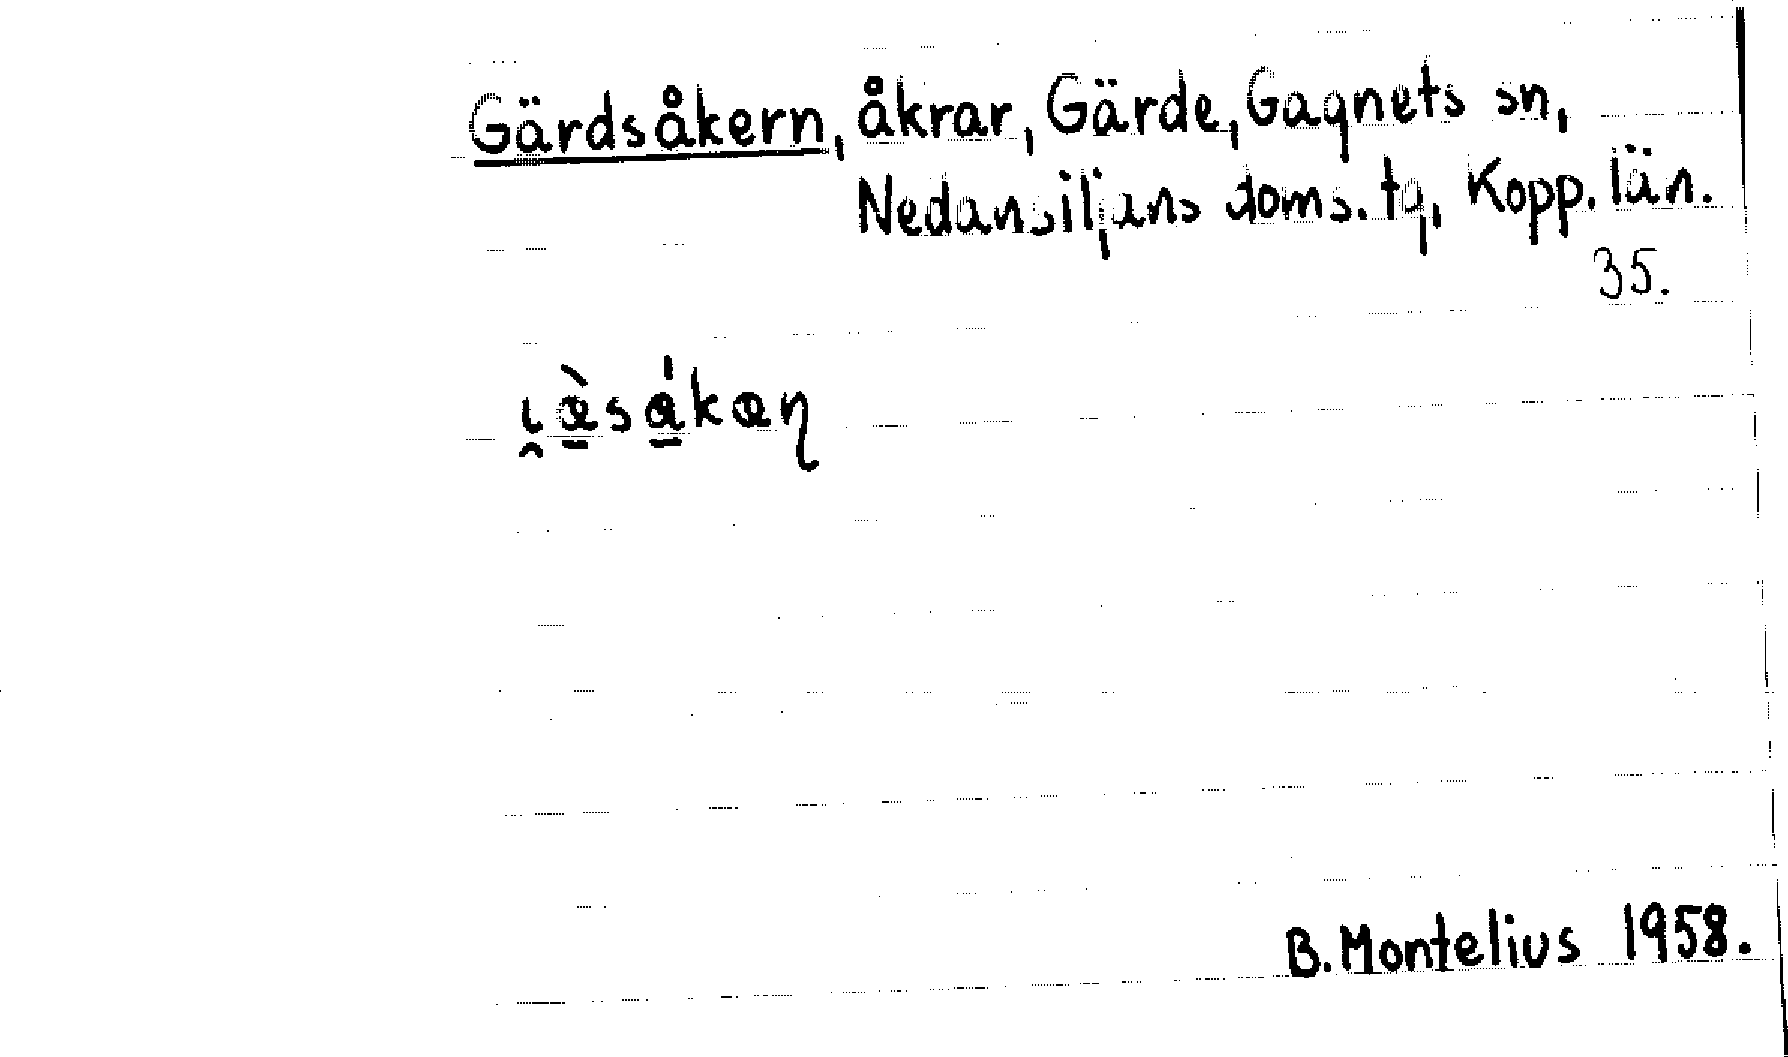 Gärdsåkern, åkrar, Gärde, Gagnets sn,
Nedansiljans doms. tg, Kopp. län.
35.
B. Montelius 1958.